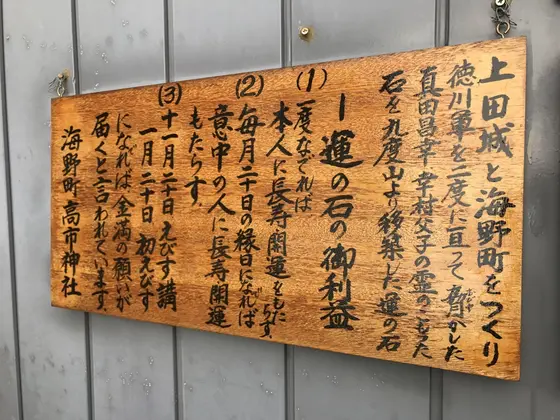 上田城と海野町をつくり
徳川軍を二度に亘って脅かした
真田昌幸 幸村父子の霊のこもった
石を九度山より移築した運の石
ー運の石の御利益
(1) 一度なでれば
本人に長寿開運をもたらす。
(2) 毎月二十日の縁日になれば
意中の人に長寿開運
もたらす。
(3) 十一月二十日 えびす講
一月二十日 初えびす
になれば 金満の願いが
届くと言われています。
海野町 高市神社